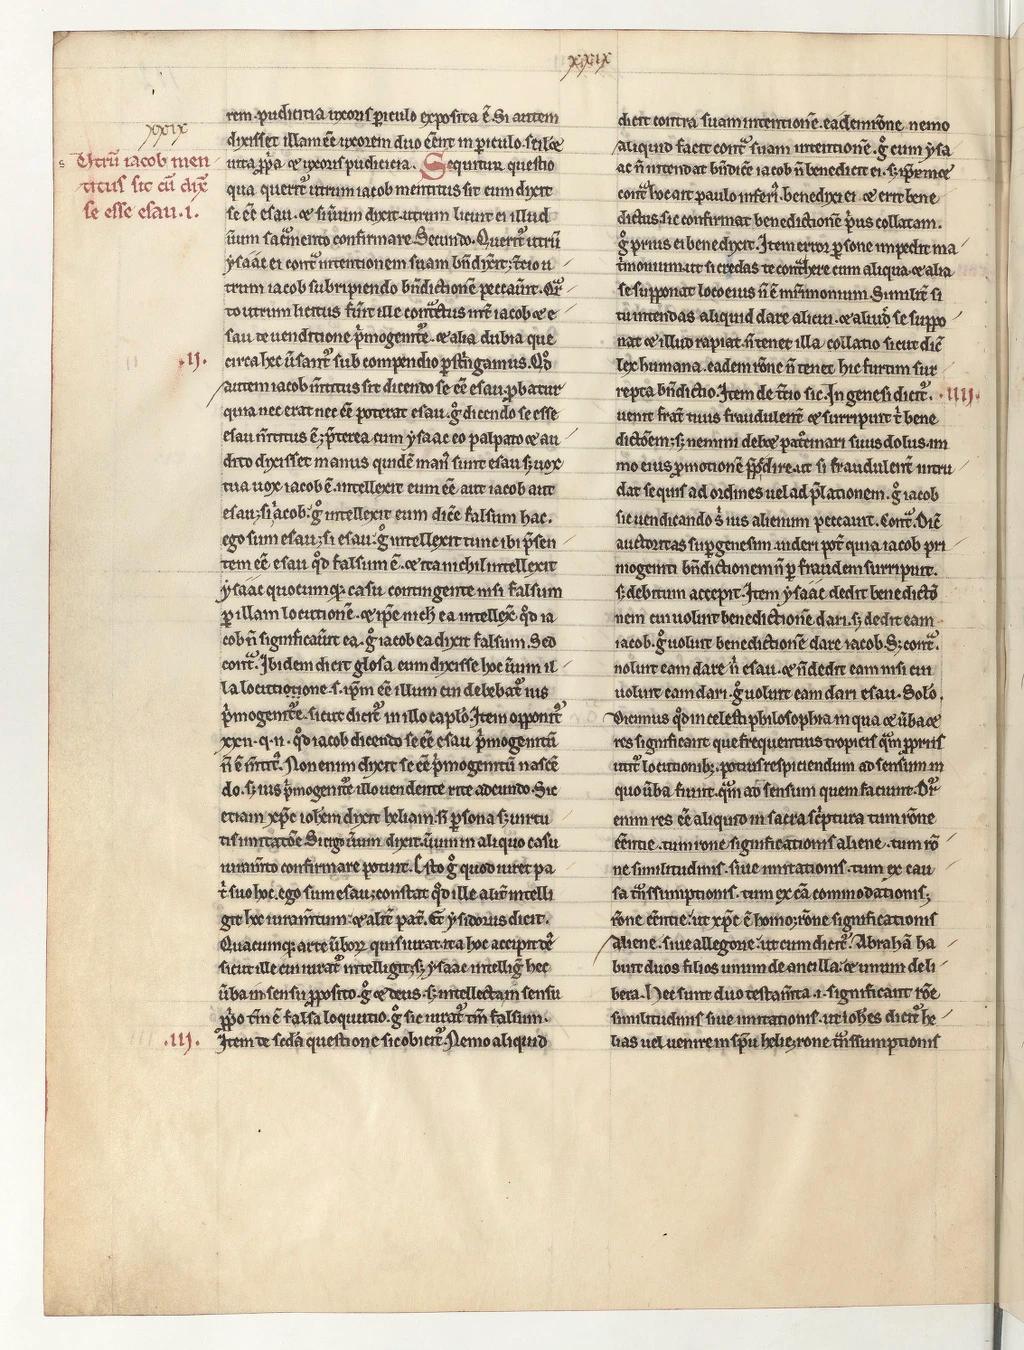 xxix
xxix
Utrũ iacob men
titus sit cũ dix̃
se esse esau .i.
rem pudicitia uxoris p̱iculo exposita ẽ Si autem
dixisset illam eẽ uxorem duo eẽnt in p̱iculo. scilicet
uita p̱p̃a et uxoris pudicicia. Sequitur questio
qua querit᷑ utrum iacob mentitus sit cum dixit
se eẽ esau. et si uũm dixit. utrum licuit ei illud
uũm sac̃mento confirmare Secundo. Querit᷑ utrũ
ysaac ei cont᷑ intentionem suam bñdixit; t̃cio u
trum iacob subripiendo bñdictionem peccauit. Q̃r
to utrum licitus fuit ille cont᷑ctus int̃ iacob et e
sau de uenditione p̃mogenit̃e. et alia dubia que
.ij.
circa hec uersant᷑ sub compendio p̱st̃igamus. Qd̃
autem iacob m̃titus sit dicendo se eẽ esau p̱batur
quia nec erat nec eẽ poterat esau. g̊ dicendo se esse
esau m̃titus ẽ; p̃terea cum ysaac eo palpato et au
dito dixisset manus quidẽ man᷑ sunt esau s; uox
tua uox iacob ẽ. intellexit eum eẽ aut iacob aut
esau; si iacob. g̊ intellexit eum dic̃e falsum hac.
ego sum esau; si esau. g̊ intellexit tunc ibi p̃sen
tem eẽ esau qd̃ falsum ẽ. et ita nichil intellexit
ysaac quocumq; casu contingente nisi falsum
p̱ illam locutionẽ. et ip̃e nich̃ ea intellex̃ qd̃ ia
cob ñ significauit ea. g̊ iacob ea dixit falsum. Sed
cont᷑. Ibidem dicit glosa eum dixisse hoc uũm il
la locutiotione. s. ip̃m eẽ illum cui debebat᷑ ius
p̃mogenit̃e. sicut dicit᷑ in illo cap̃lo. Item opponit᷑
xxii. q. ii. qd̃ iacob dicendo se eẽ esau p̃mogenitũ
ñ ẽ m̃tit᷑. Non enim dixit se eẽ p̃mogenitũ nascẽ
do. s; ius p̃mogenit̃e illo uendente rite adeundo. Sic
etiam xp̃c ioh̃em dixit heliam. ñ p̱sona s; uirtu
tis imitatõe Si ergo uũm dixit. uũm in aliquo casu
iuram̃to confirmare potuit. Esto g̊ quod iuret pa
t̃ suo hoc. ego sum esau; constat qd̃ ille alit̃ intelli
git hoc iuram̃tum. et alit̃ pat̃. Et ysidorus dicit.
Quacumq; arte ũbor̃ quis iurat. ita hoc accipit d̃s
sicut ille cui iurat᷑ intelligit; s; ysaac intellig̃ hec
ũba in sensu p̱posito. g̊ et deus. s; intellecta in sensu
p̱p̱o tm̃ ẽ falsa loquutio. g̊ sic iurat᷑ tm̃ falsum.
.iij.
Item de sc̃da questione sic obicit᷑. Nemo aliquid
dicit contra suam intentionẽ. eadem rõne nemo
aliquid facit cont᷑ suam intentionẽ. g̊ cum ysa
ac ñ intendat bñdic̃e iacob ñ benedicit ei. s; ip̃emet
cont᷑ hoc ait paulo inferi᷑. benedixi ei et erit bene
dictus. sic confirmat benedictionẽ p̃us collatam.
g̊ prius ei benedixit. Item error p̱sone impedit ma
t̃monium. ut si credas te cont᷑here cum aliqua. et alia
se supponat loco eius ñ ẽ mat̃imonium. Similit̃ si
tu intendas aliquid dare alicui. et aliud̃ se suppo
nat et illud rapiat. ñ tenet illa collatio sicut dic̃
lex humana. eadem rõne ñ tenet hic furtim sur
repta bñdictio. Item de t̃cio sic. In genesi dicit᷑.
.iiij.
uenit frat̃ tuus fraudulent̃ et surripuit t᷑ bene
dictõem; s; nemini debet pat᷑cinari suus dolus. im
mo eius p̱motionẽ p̱p̱dire. ut si fraudulent̃ intru
dat se quis ad ordines uel ad p̃lationem. g̊ iacob
sic uendicando s᷑ ius alienum peccauit. Cont᷑. Dic̃
auctoritas sup̱ genesim. uideri pot̃ quia iacob pri
mogeniti bñdictionem ñ p̱ fraudem surripuit.
s; debitum accepit. Item ysaac dedit benedictõ
nem cui uoluit benedictionẽ dari. s; dedit eam
iacob. g̊ uoluit benedictionẽ dare iacob. S; cont᷑.
noluit eam dare n᷑ esau. et ñ dedit eam nisi cui
uoluit eam dari. g̊ uoluit eam dari esau. Solõ.
Dicimus qd̃ in celesti philosophia in qua et ũba et
res significant que frequentius tropicis q᷑m p̱p̱riis
utit᷑ locutionib;. potius respiciendum ad sensum in
quo ũba fiunt. q᷑m ad sensum quem faciunt. Dr̃
enim res eẽ aliquid in sacra sc̃ptura tum rõne
eẽntie. tum rone significationis aliene. tum rõ
ne similitudinis. siue imitationis. tum ex cau
sa t᷑nssumptionis. tum ex cã commodationis;
rõne eẽntie. ut xp̃c ẽ homo; rõne significationis
aliene. siue allegorie. ut cum dicit᷑. Abrahã ha
buit duos filios unum de ancilla. et unum de li
bera. Hec sunt duo testam̃ta. i. significant rõe
similitudinis siue imitationis. ut ioh̃es dicit᷑ he
lias uel uenire in sp̃u helie; rone t᷑nssumptionis